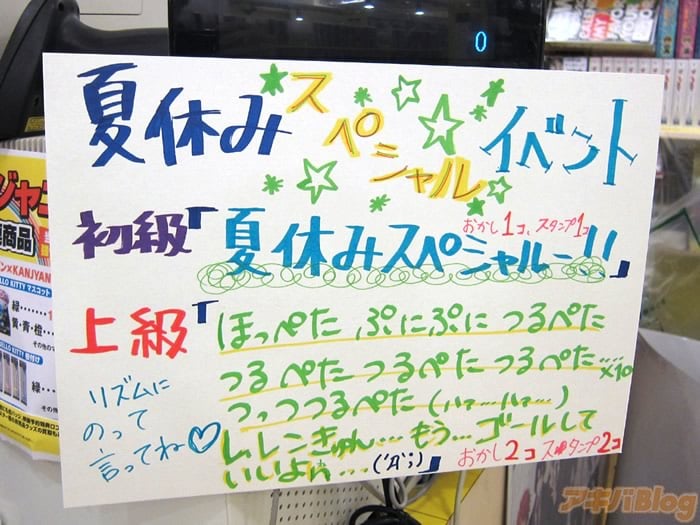 0
夏休み スペシャル イベント
おかし1コ、スタンプ1コ
初級「夏休みスペシャルー!!」
上級「ほっぺた ぷにぷに つるぺた
つるぺたつるぺたつるぺた…×10
つっつつるぺた(ハァ…ルァ…)
し、レンきゅん…もう…ゴールして
いいよね…('Д`;)」
おかし2コ スタンプ2コ
リズムに
のって
言ってね♡
ジャン
商品
ン×KANJYAN
ELLO KITTY マスコット
緑
黄・青・橙
その他の
緑
その他
アキバBlog